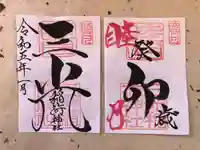 三光
稲荷神社
令和五年一月
癸
卯
歳
睦月